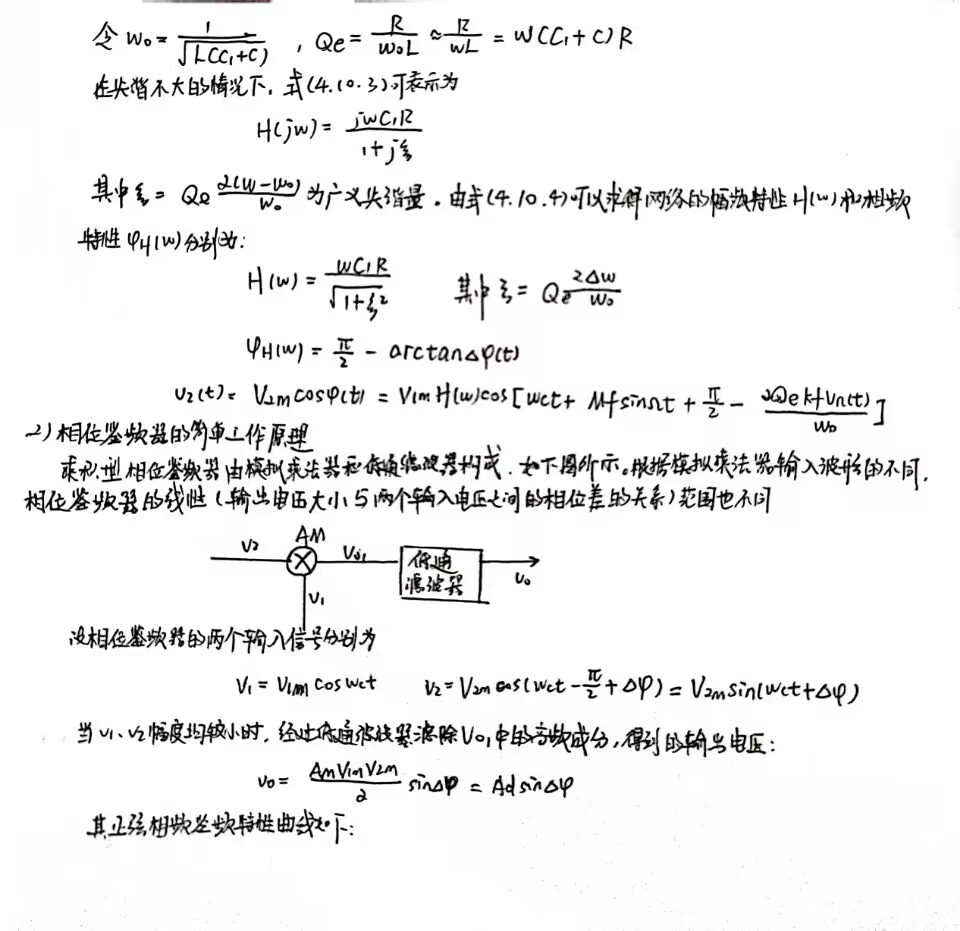 令 W₀ = 1/√(L(C₁+C)) , Qe = R/(W₀L) ≈ R/(WL) = W(C₁+C)R
在失谐不大的情况下, 式(4.10.3)可表示为
H(jw) = jwC₁R/(1+jξ)
其中ξ = Qe 2(W-W₀)/W₀ 为广义失谐量. 由式(4.10.4)可以求得网络的幅频特性H(w)和相频
特性φH(w)分别为:
H(w) = WC₁R/√(1+ξ²) 其中ξ = Qe 2Δw/W₀
φH(w) = π/2 - arctanΔφ(t)
V₂(t) = V₂m cosφ(t) = V₁m H(w)cos[Wct + Mf sinΩt + π/2 - 2Qe kf VΩ(t)/W₀]
2) 相位鉴频器的简单工作原理
乘积型相位鉴频器由模拟乘法器和低通滤波器构成. 如下图所示。根据模拟乘法器输入波形的不同,
相位鉴频器的线性(输出电压大小与两个输入电压之间的相位差的关系)范围也不同
AM
V₂ V₀₁ 低通
滤波器 V₀
V₁
设相位鉴频器的两个输入信号分别为
V₁ = V₁m cos Wct V₂ = V₂m cos(Wct - π/2 + Δφ) = V₂m sin(Wct + Δφ)
当V₁、V₂幅度均较小时, 经过低通滤波器滤除V₀₁中的高频成分, 得到的输出电压:
V₀ = AmV₁mV₂m/2 sinΔφ = Ad sinΔφ
其正弦相频鉴频特性曲线如下: